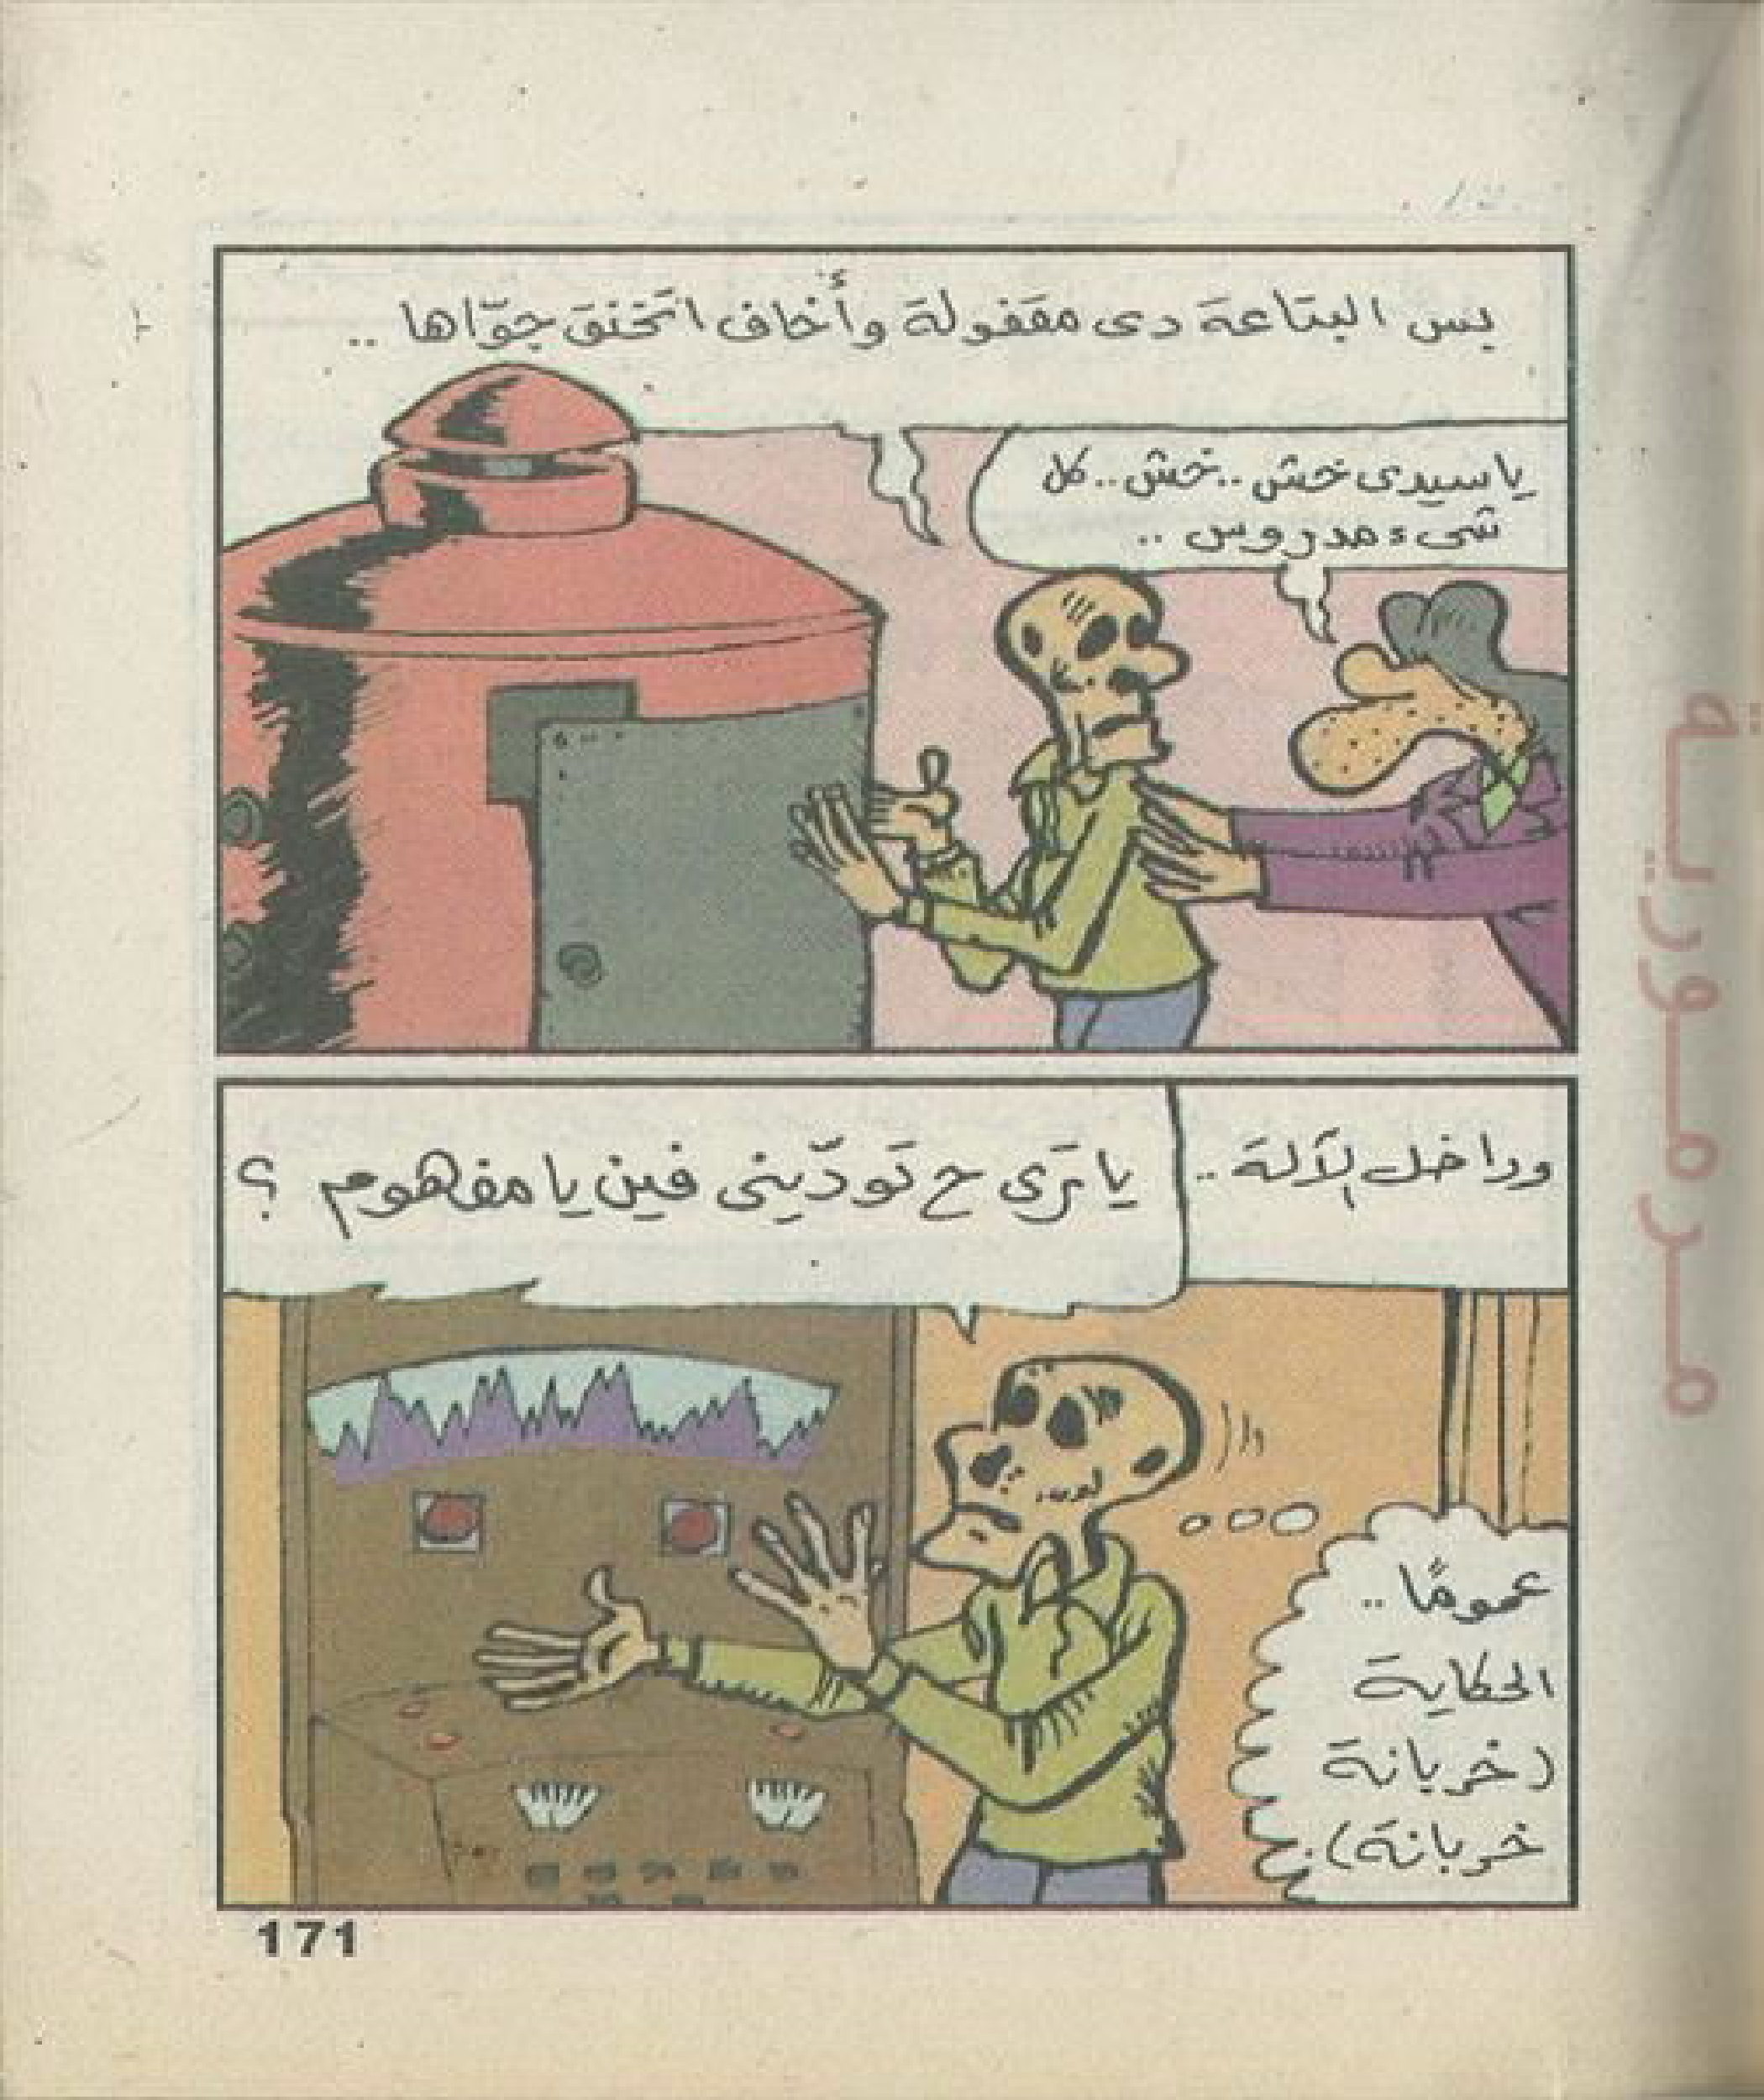 بس البتاعة دى مقفولة وأخاف اتخنق جوّاها ..
يا سيدى خش .. خش .. كل
شىء مدروس ..
وداخل الآلة ..
يا ترَى ح تودّينى فين يا مفهوم ؟
عمومًا ..
الحكاية
(خربانة
خربانة).
171
مرمورية